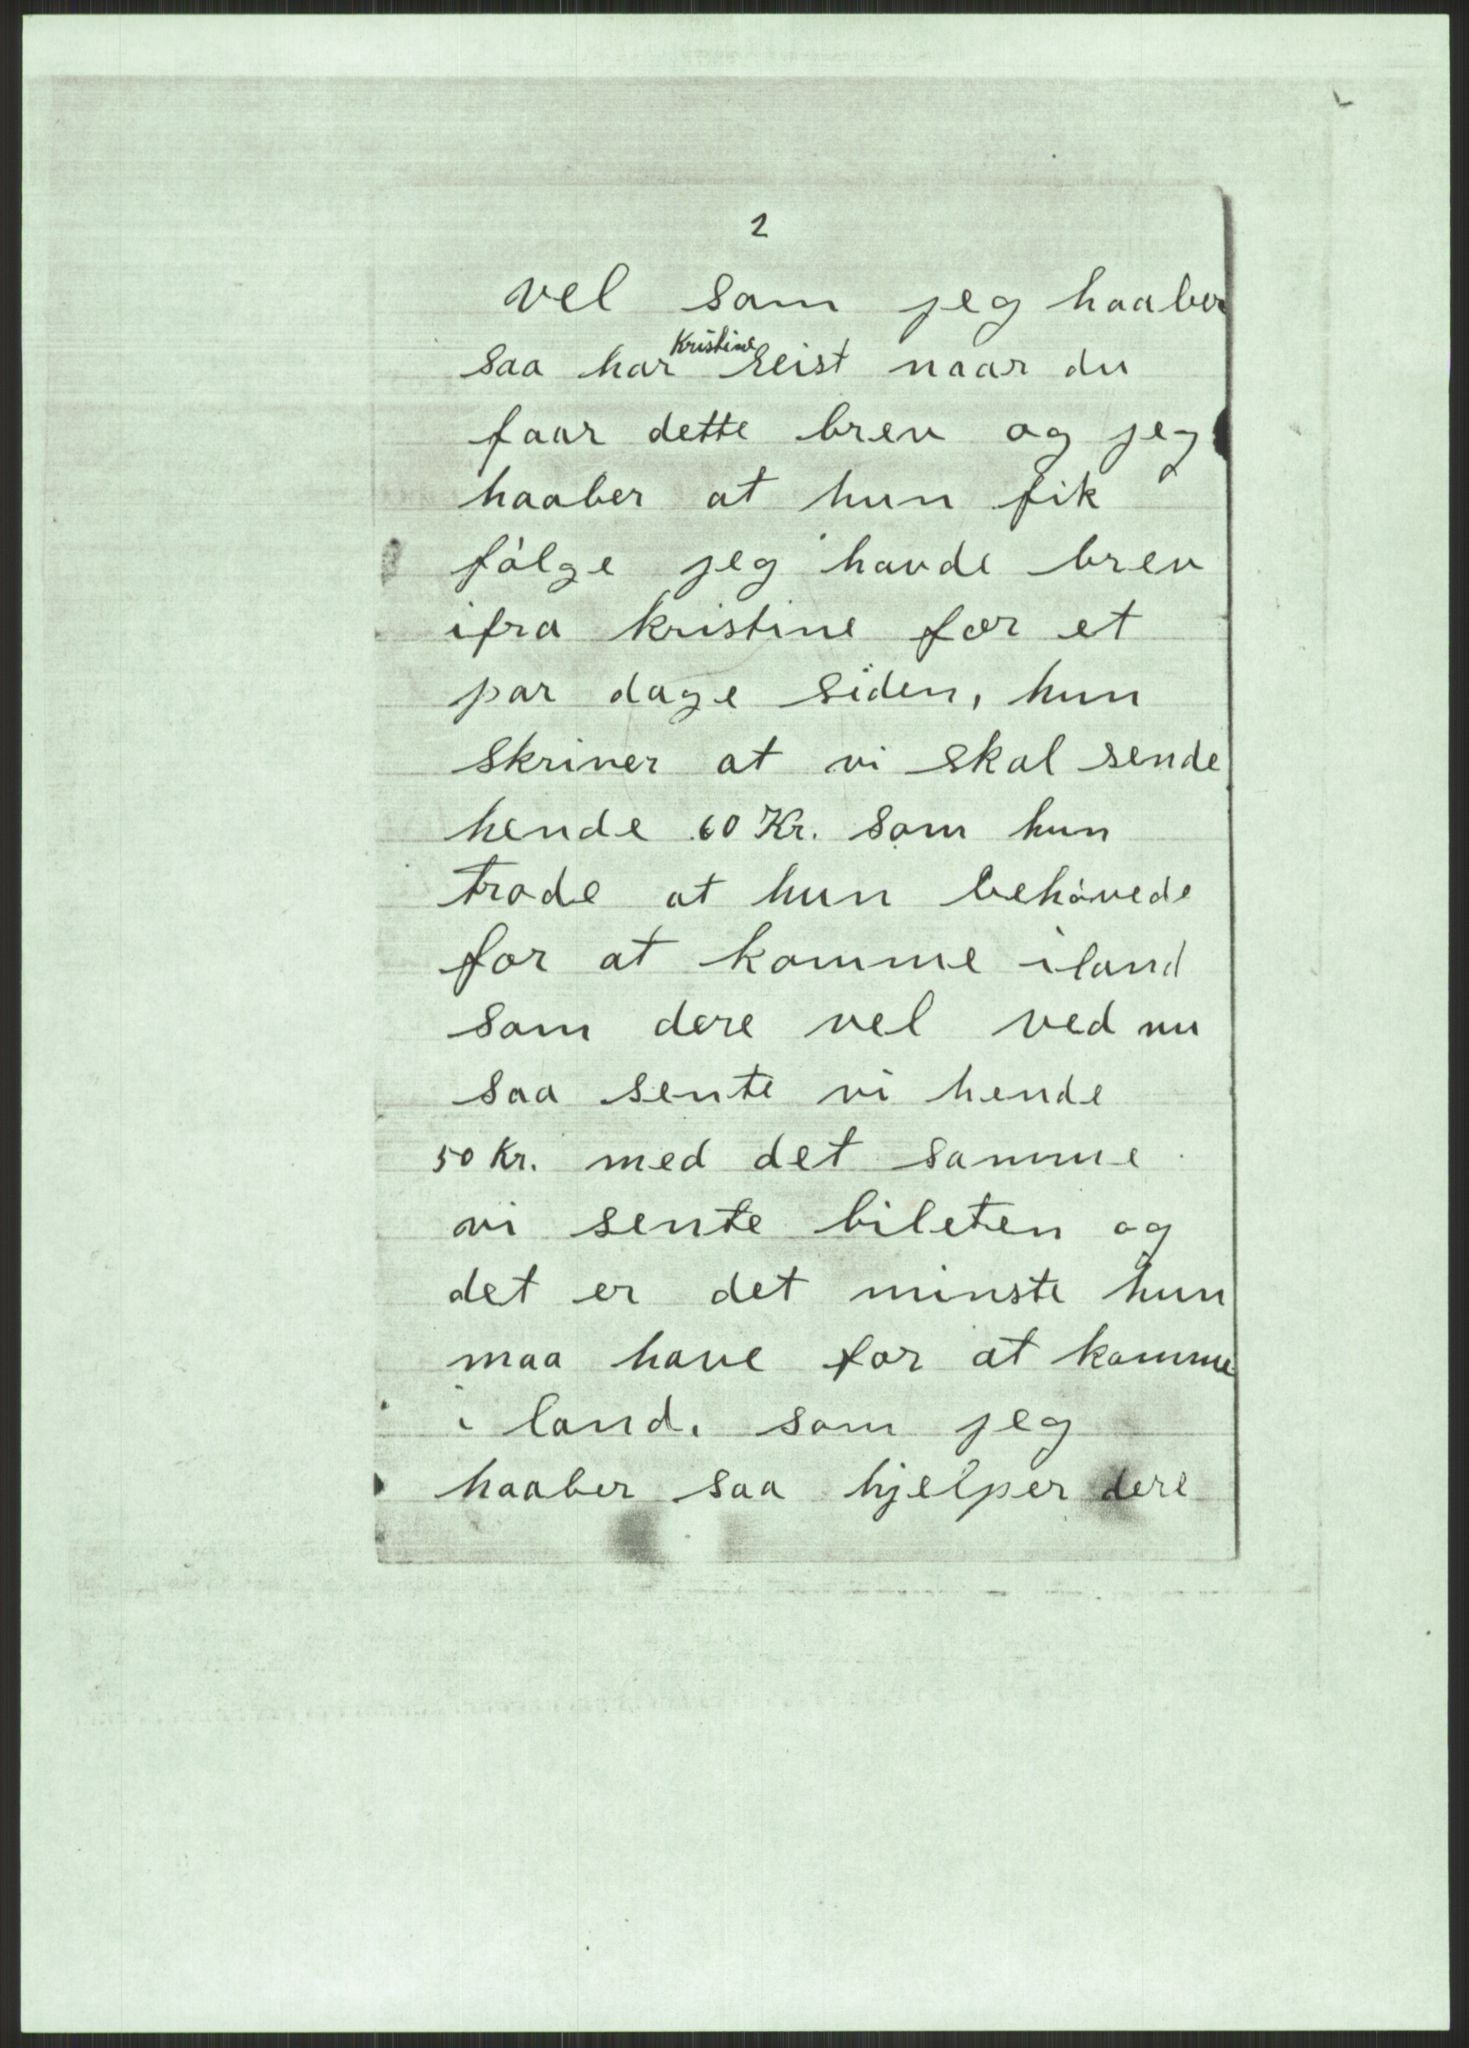 2
vel som jeg haaber
saa har Kristine reist naar du
faar dette brev og jeg
haaber at hun fik
følge jeg havde brev
ifra kristine for et
par dage siden, hun
skriver at vi skal sende
hende 60 Kr. som hun
trode at hun behøvede
for at komme iland
som dere vel ved nu
saa sente vi hende
50 Kr. med det samme
vi sente bileten og
det er det minste hun
maa have for at komme
i land. som jeg
haaber saa hjelper dere